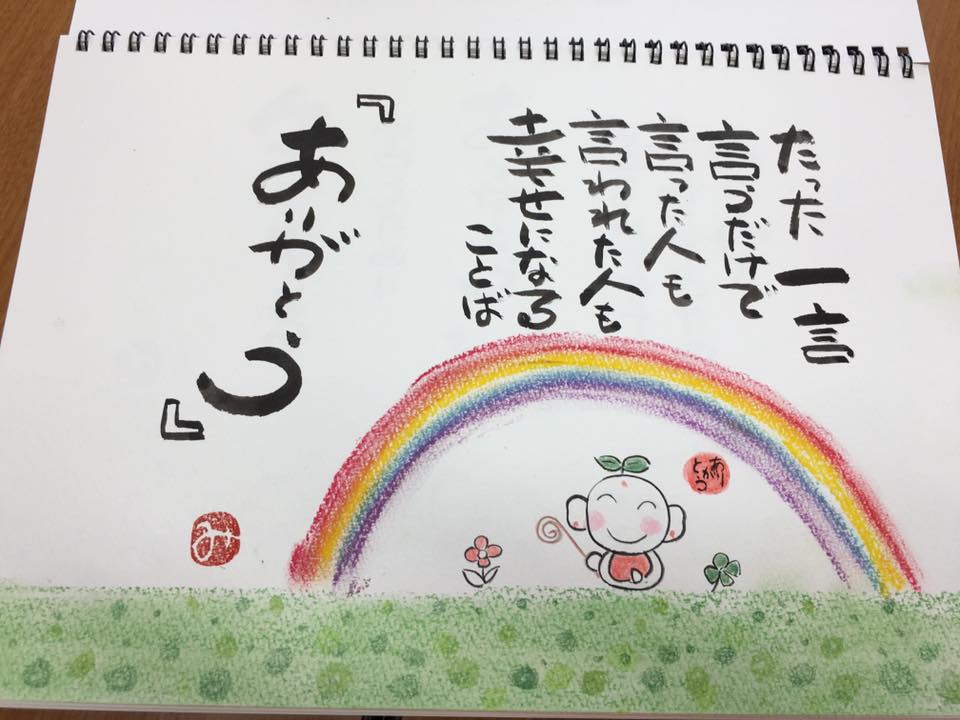 たった一言
言うだけで
言った人も
言われた人も
幸せになる
ことば
『ありがとう』
ありがとう
み